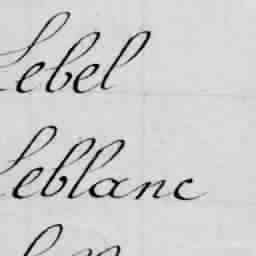 Lebel
Leblanc